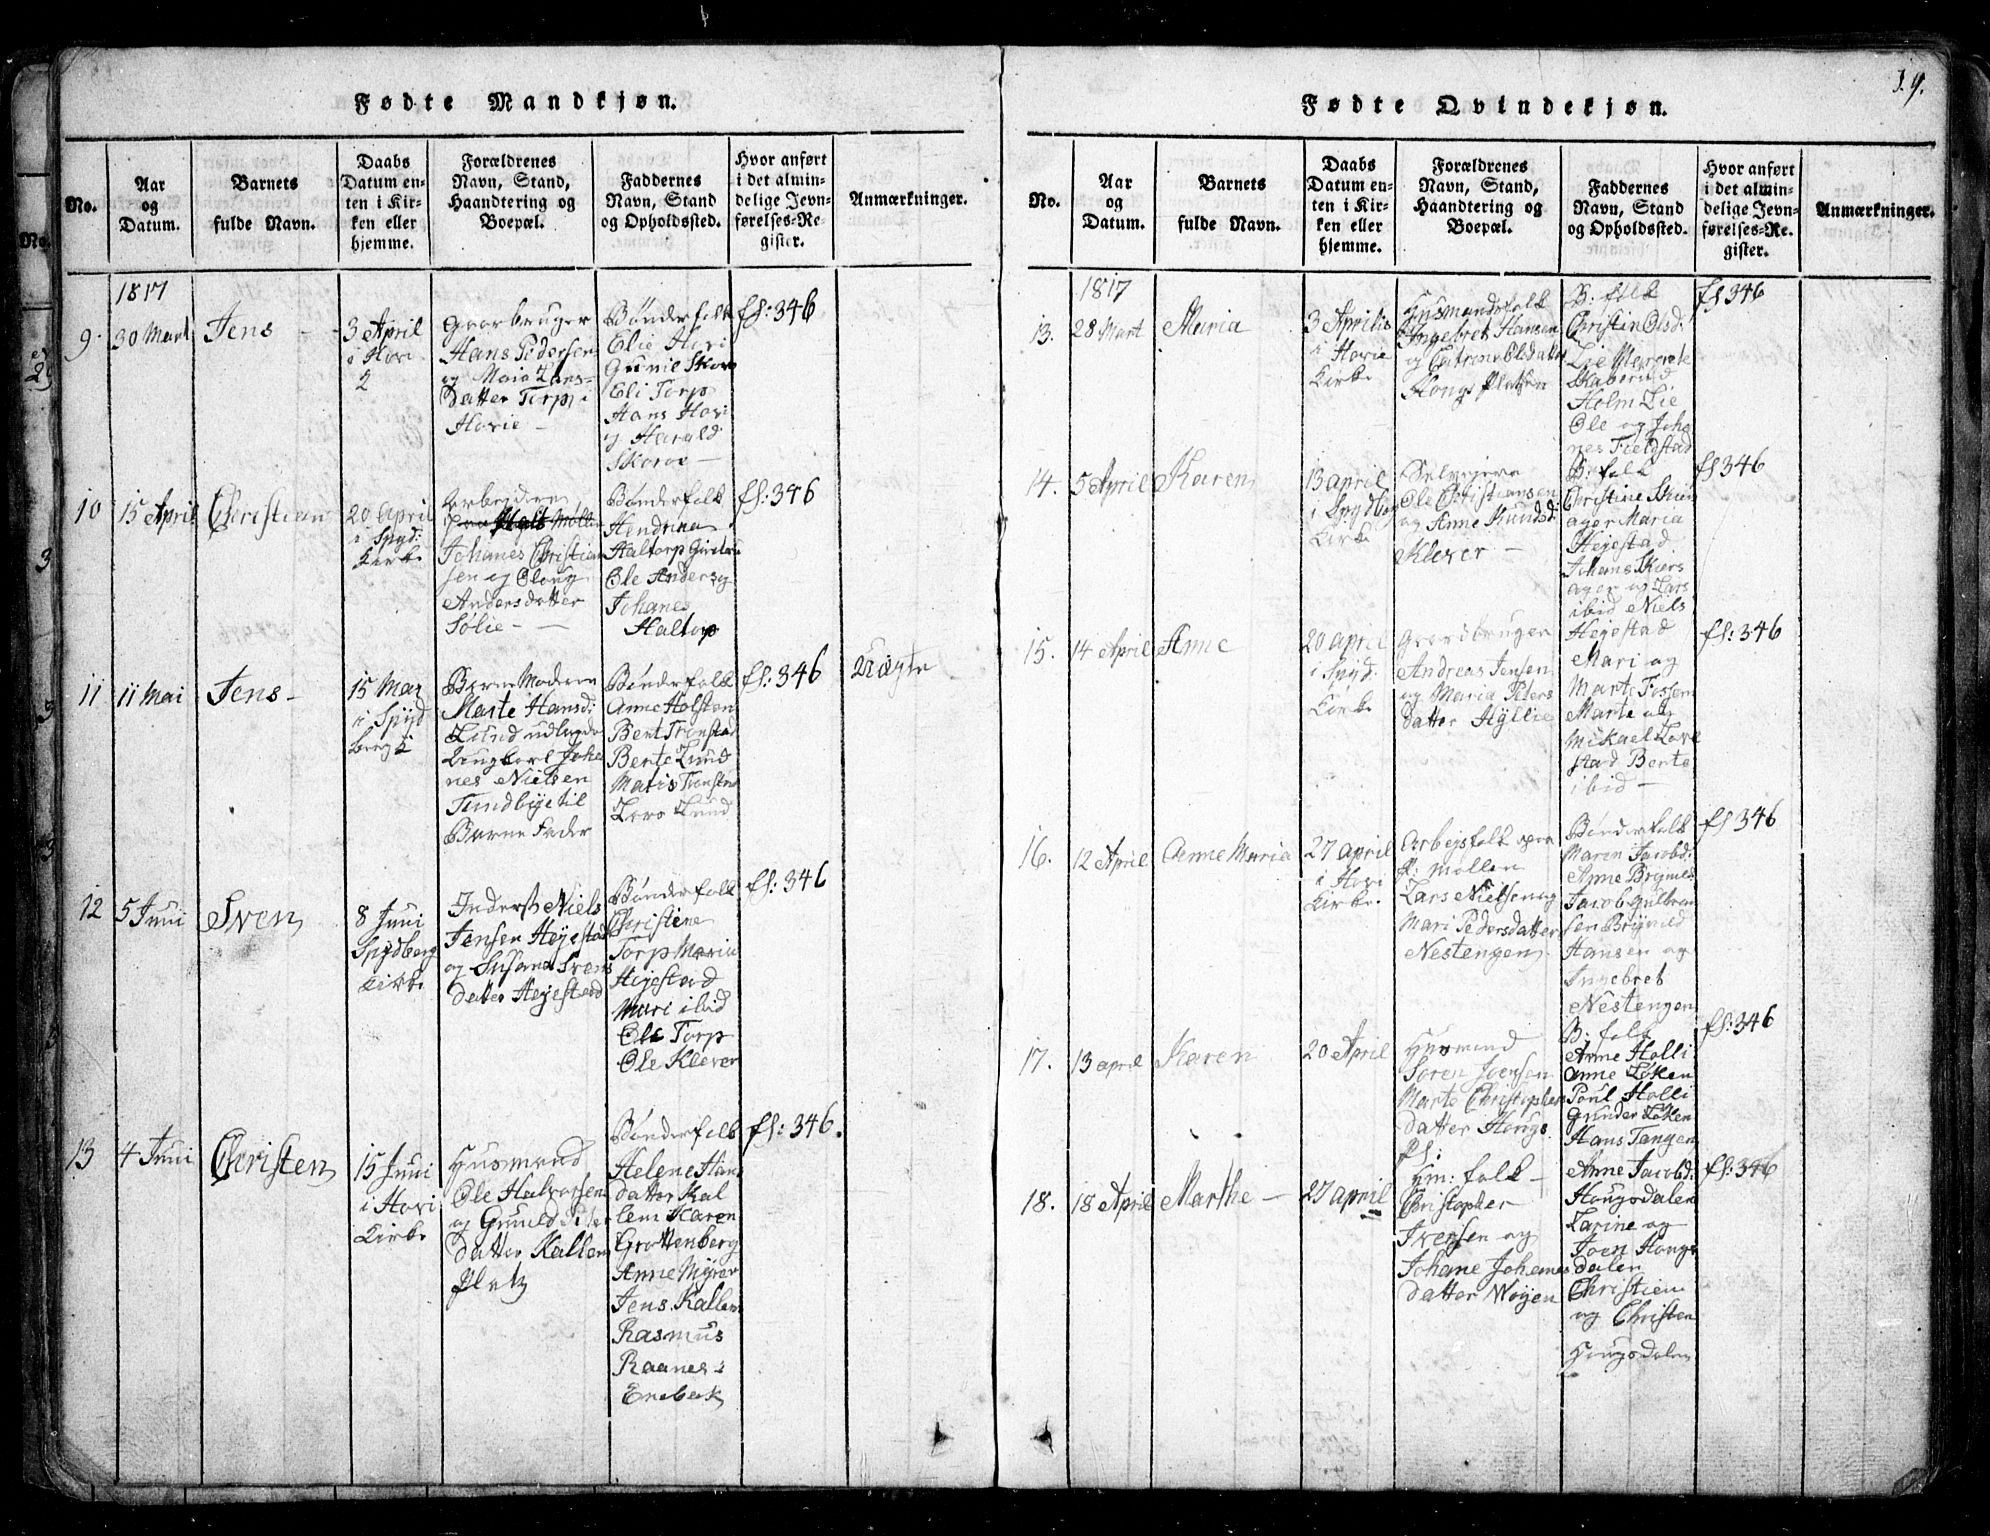 19.
Fødte Mandkjøn.
No.
Aar
og
Datum.
Barnets
fulde Navn.
Daabs
Datum en-
ten i Kir-
ken eller
hjemme.
Forældrenes
Navn, Stand,
Haandtering og
Boepæl.
Faddernes
Navn, Stand
og Opholdssted.
Hvor anført
i det almin-
delige Jevn-
førelses-Re-
gister.
Anmærkninger.
1817
9.
30 Mart
Jens
3 April
i Hovi
Gaarbruger
Hans Pedersen
og Maia Lars-
datter Torp i
Hovie —
Bønderfolk
Elie Hovi
Gunil Skov
Eli Torp
Hans Hovi
og Harald
Skorve —
fl: 346
10
15 April
Christian
20 April
i Spyd:
Kirke
Arbeydere
Johanes Christian
sen og Oloug
Andersdatter
Solie —
Bønderfolk
Hendrina
Haltorp
Ole Anders og
Johanes
Haltorp
fl: 346
11
11 Mai
Jens —
15 Mai
i Spyd
berg K
Barne Moderen
Marte Hansd:
Lund udlagde
Ungkarl Joha
nes Nielsen
Tundbye til
Barne Fader
Bønderfolk
Anne Holsten
Bent Tronstad
Bente Lund
Matis Tronstad
Lars Lund
fl: 346
Uægte
12
5 Juni
Sven
8 Juni
Spydberg
Kirke
Inderst Niels
Jensen Heyestad
og Susana Svens
datter Heyestad
Bønderfolk
Christine
Torp Maria
Heyestad
Mari ibid
Ole Torp
Ole Klever
fl: 346
13
4 Juni
Christen
15 Juni
i Hovi
Kirke
Husmand
Ole Halvorsen
og Gunild Peter
datter Kallem
Plets
Bønderfolk
Helene Hans
datter Kal
lem Karen
Grottenberg
Anne Myrer
Jens Kallem
Rasmus
Raanes
Enebak
fl: 346.
Fødte Qvindekjøn.
No.
Aar
og
Datum.
Barnets
fulde Navn.
Daabs
Datum en-
ten i Kir-
ken eller
hjemme.
Forældrenes
Navn, Stand,
Haandtering og
Boepæl.
Faddernes
Navn, Stand
og Opholdssted.
Hvor anført
i det almin-
delige Jevn-
førelses-Re-
gister.
Anmærkninger.
1817
13.
28 Mart
Maria
3 Aprilis
i Hovie
Kirke
Husmandsfolk
Ingebret Hansen
og Catrine Olsdatter
Hougs Platsen
B: folk
Christin Olsd:
Lie
Holm Lie
Ole og Joha
nes Fieldstad
fl 346
14.
5 April
Karen
13 april
i Spydberg
Kirke
Selveyere
Ole Christiansen
og Anne Knudsd:
Klever —
B: folk
Christine Skiers
ager Maria
Heyestad
Johans Skiers
ager og Lars
ibid Niels
Heyestad
fl 346
15.
14 April
Anne
20 april
i Spyd.
Kirke
Gaardbruger
Andreas Jensen
og Maria Peters
datter Hyllie
Mari og
Marte Fossen
Marte og
Mikael Love
stad Bente
ibid —
fl: 346
16.
12 April
Anne Maria
27 april
i Hovi
Kirke.
Arbejsfolk paa
Mollen
Lars Nielsen og
Mari Pedersdatter
Nestengen
Bønderfolk
Maren Jacobd:
Anne Brynils
Jacob Gulbran
sen Brynild
Hansen og
Ingebret
Nestengen
fl 346
17.
13 april
Karen
20 April
Husmand
Soren Joensen
Marte Christophers
datter Hougs
Pl:
B: folk
Anne Holli
Anne Løken
Poul Holli
Gunder Løken
Hans Tangen
fl: 346
18.
18 April
Marthe —
27 april
Hm: folk —
Christopher
Iversen og
Johane Johanes
datter Woyen
Anne Jacobd:
Hougsdalen
Larine og
Joen Hougs
dalen
Christien
og Christen
Hougsdalen
fl: 346